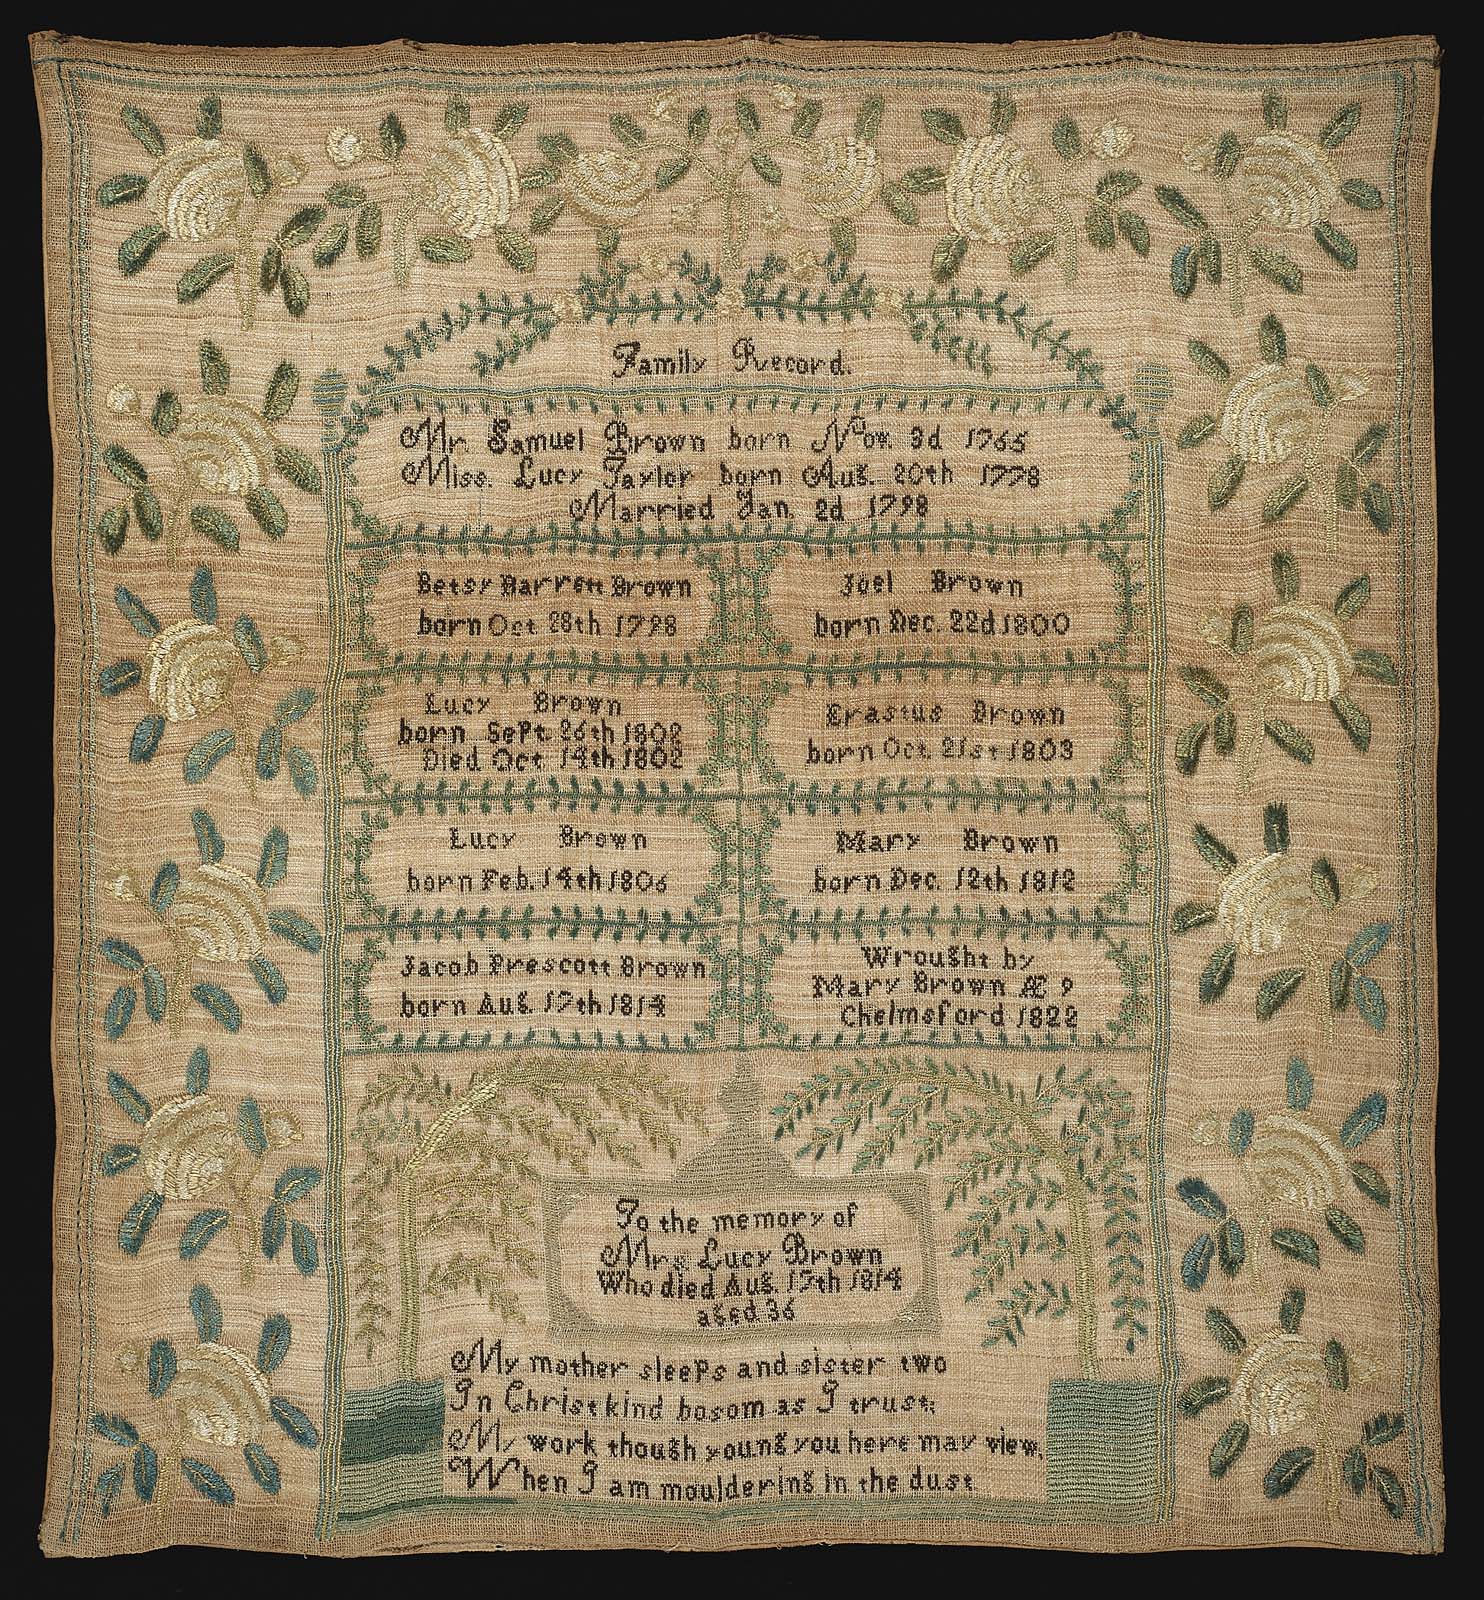 Family Record.
Mr. Samuel Brown born Nov. 3d 1765
Miss. Lucy Taylor born Aug. 20th 1778
Married Jan. 2d 1798
Betsy Barrett Brown
born Oct 28th 1798
Joel Brown
born Dec. 22d 1800
Lucy Brown
born Sept. 26th 1802
Died Oct 14th 1802
Erastus Brown
born Oct. 21st 1803
Lucy Brown
born Feb. 14th 1806
Mary Brown
born Dec. 12th 1812
Jacob Prescott Brown
born Aug. 17th 1814
Wrought by
Mary Brown Æ 9
Chelmsford 1822
To the memory of
Mrs Lucy Brown
Who died Aug. 17th 1814
aged 36
My mother sleeps and sister two
In Christ kind bosom as I trust;
My work though young you here may view,
When I am mouldering in the dust